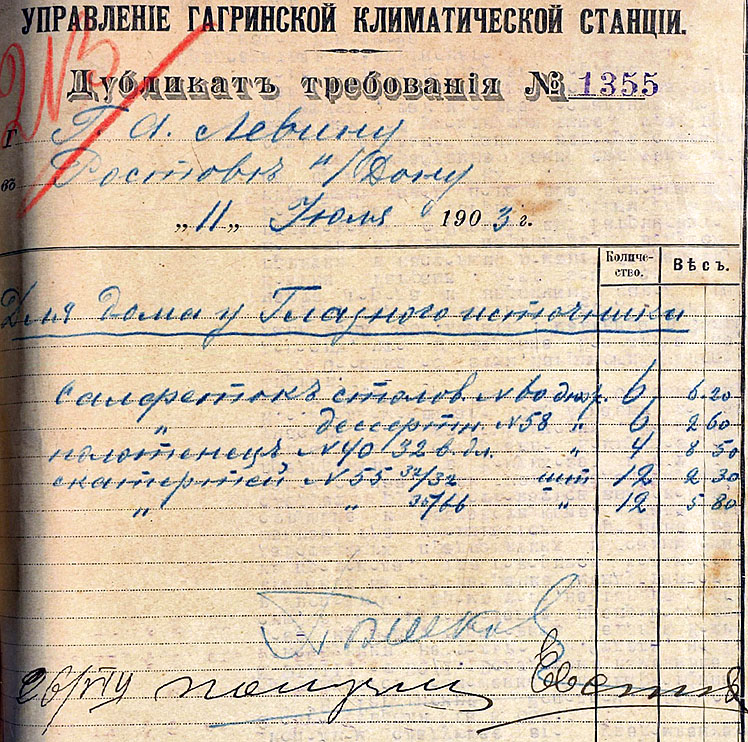 УПРАВЛЕНІЕ ГАГРИНСКОЙ КЛИМАТИЧЕСКОЙ СТАНЦІИ.
Дубликатъ требованія № 1355
Г Г. А. Левину
въ Ростовѣ н/Дону
„11„ Июля 1903 г.
Количество. Вѣсъ.
Для дома у Глазного источника
салфетокъ столов. N 60 дюж. 6 6 20
„ дессертн. N 58 „ 6 2 60
полотенецъ N 40 32 в. дл. „ 4 8 50
скатертей N 55 32/32 шт 12 2 30
„ „ 36/66 „ 12 5 80